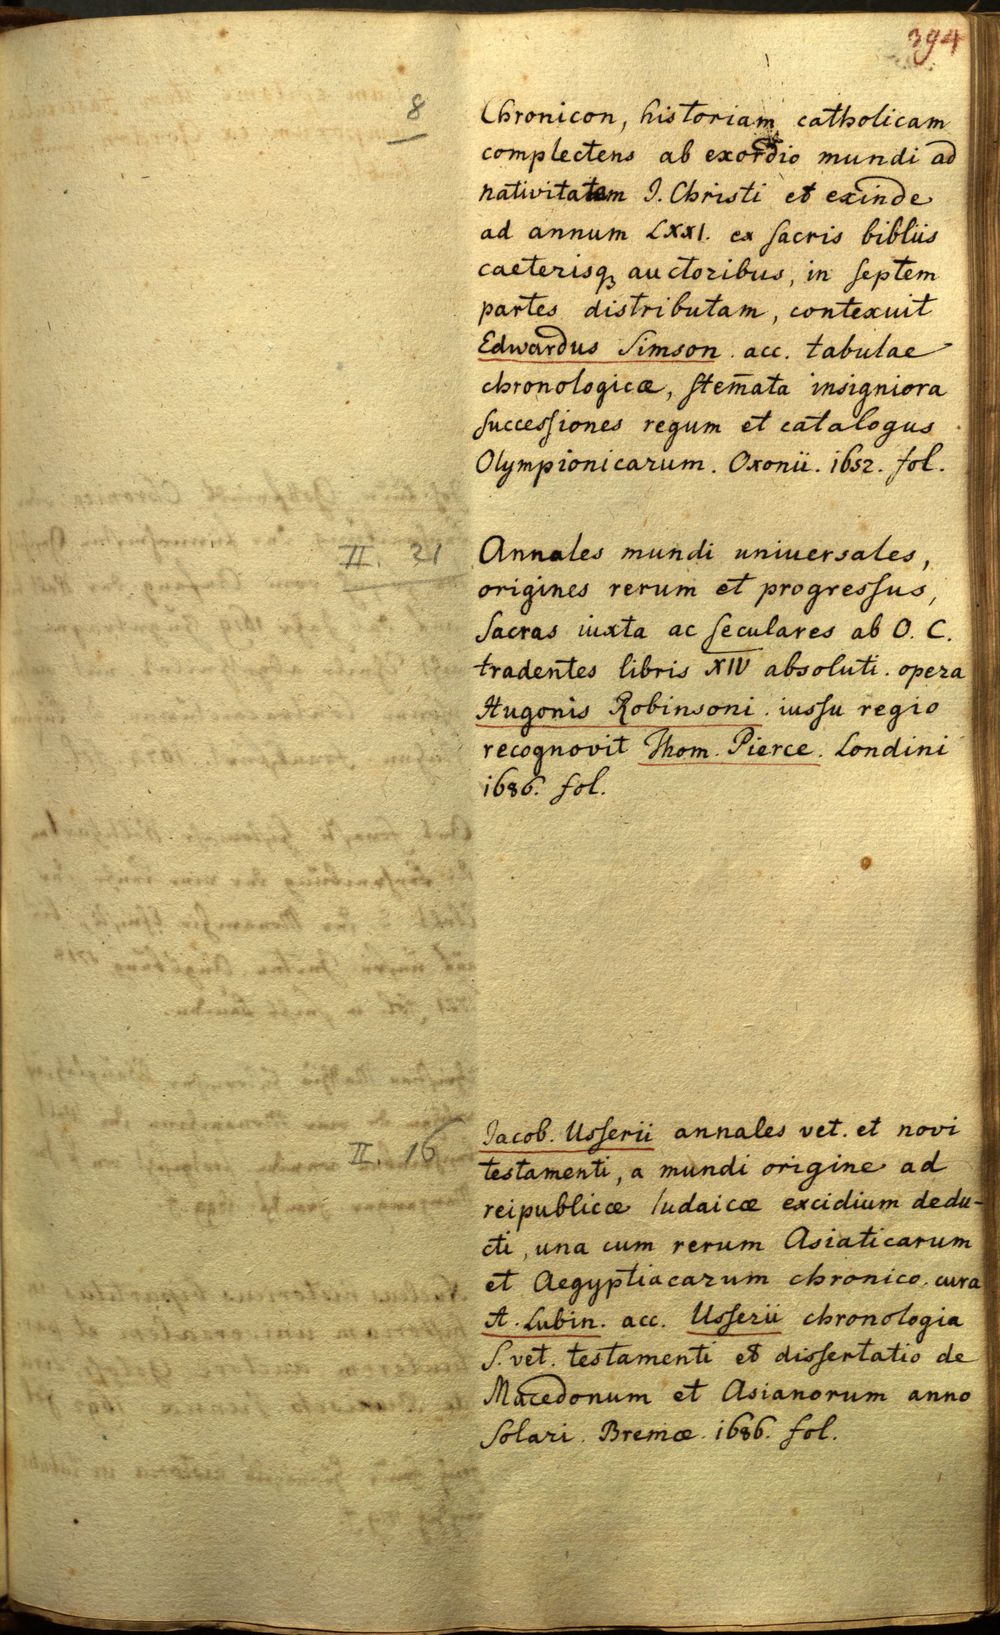 394
8
Chronicon, historiam catholicam
complectens ab exordio mundi ad
nativitatem I. Christi et exinde
ad annum LXXI. ex sacris bibliis
caeterisq; auctoribus, in septem
partes distributam, contexuit
Edwardus Simson. acc. tabulae
chronologicæ, stem̄ata insigniora
successiones regum et catalogus
Olympionicarum. Oxonii. 1652. fol.
II. 21
Annales mundi universales,
origines rerum et progressus,
sacras iuxta ac seculares ab O. C.
tradentes libris XIV absoluti. opera
Hugonis Robinsoni. iussu regio
recognovit Thom. Pierce. Londini
1686. fol.
II. 16
Iacob. Usserii annales vet. et novi
testamenti, a mundi origine ad
reipublicæ Iudaicæ excidium dedu-
cti, una cum rerum Asiaticarum
et Aegyptiacarum chronico. cura
A. Lubin. acc. Usserii chronologia
S. vet. testamenti et dissertatio de
Macedonum et Asianorum anno
solari. Bremæ. 1686. fol.